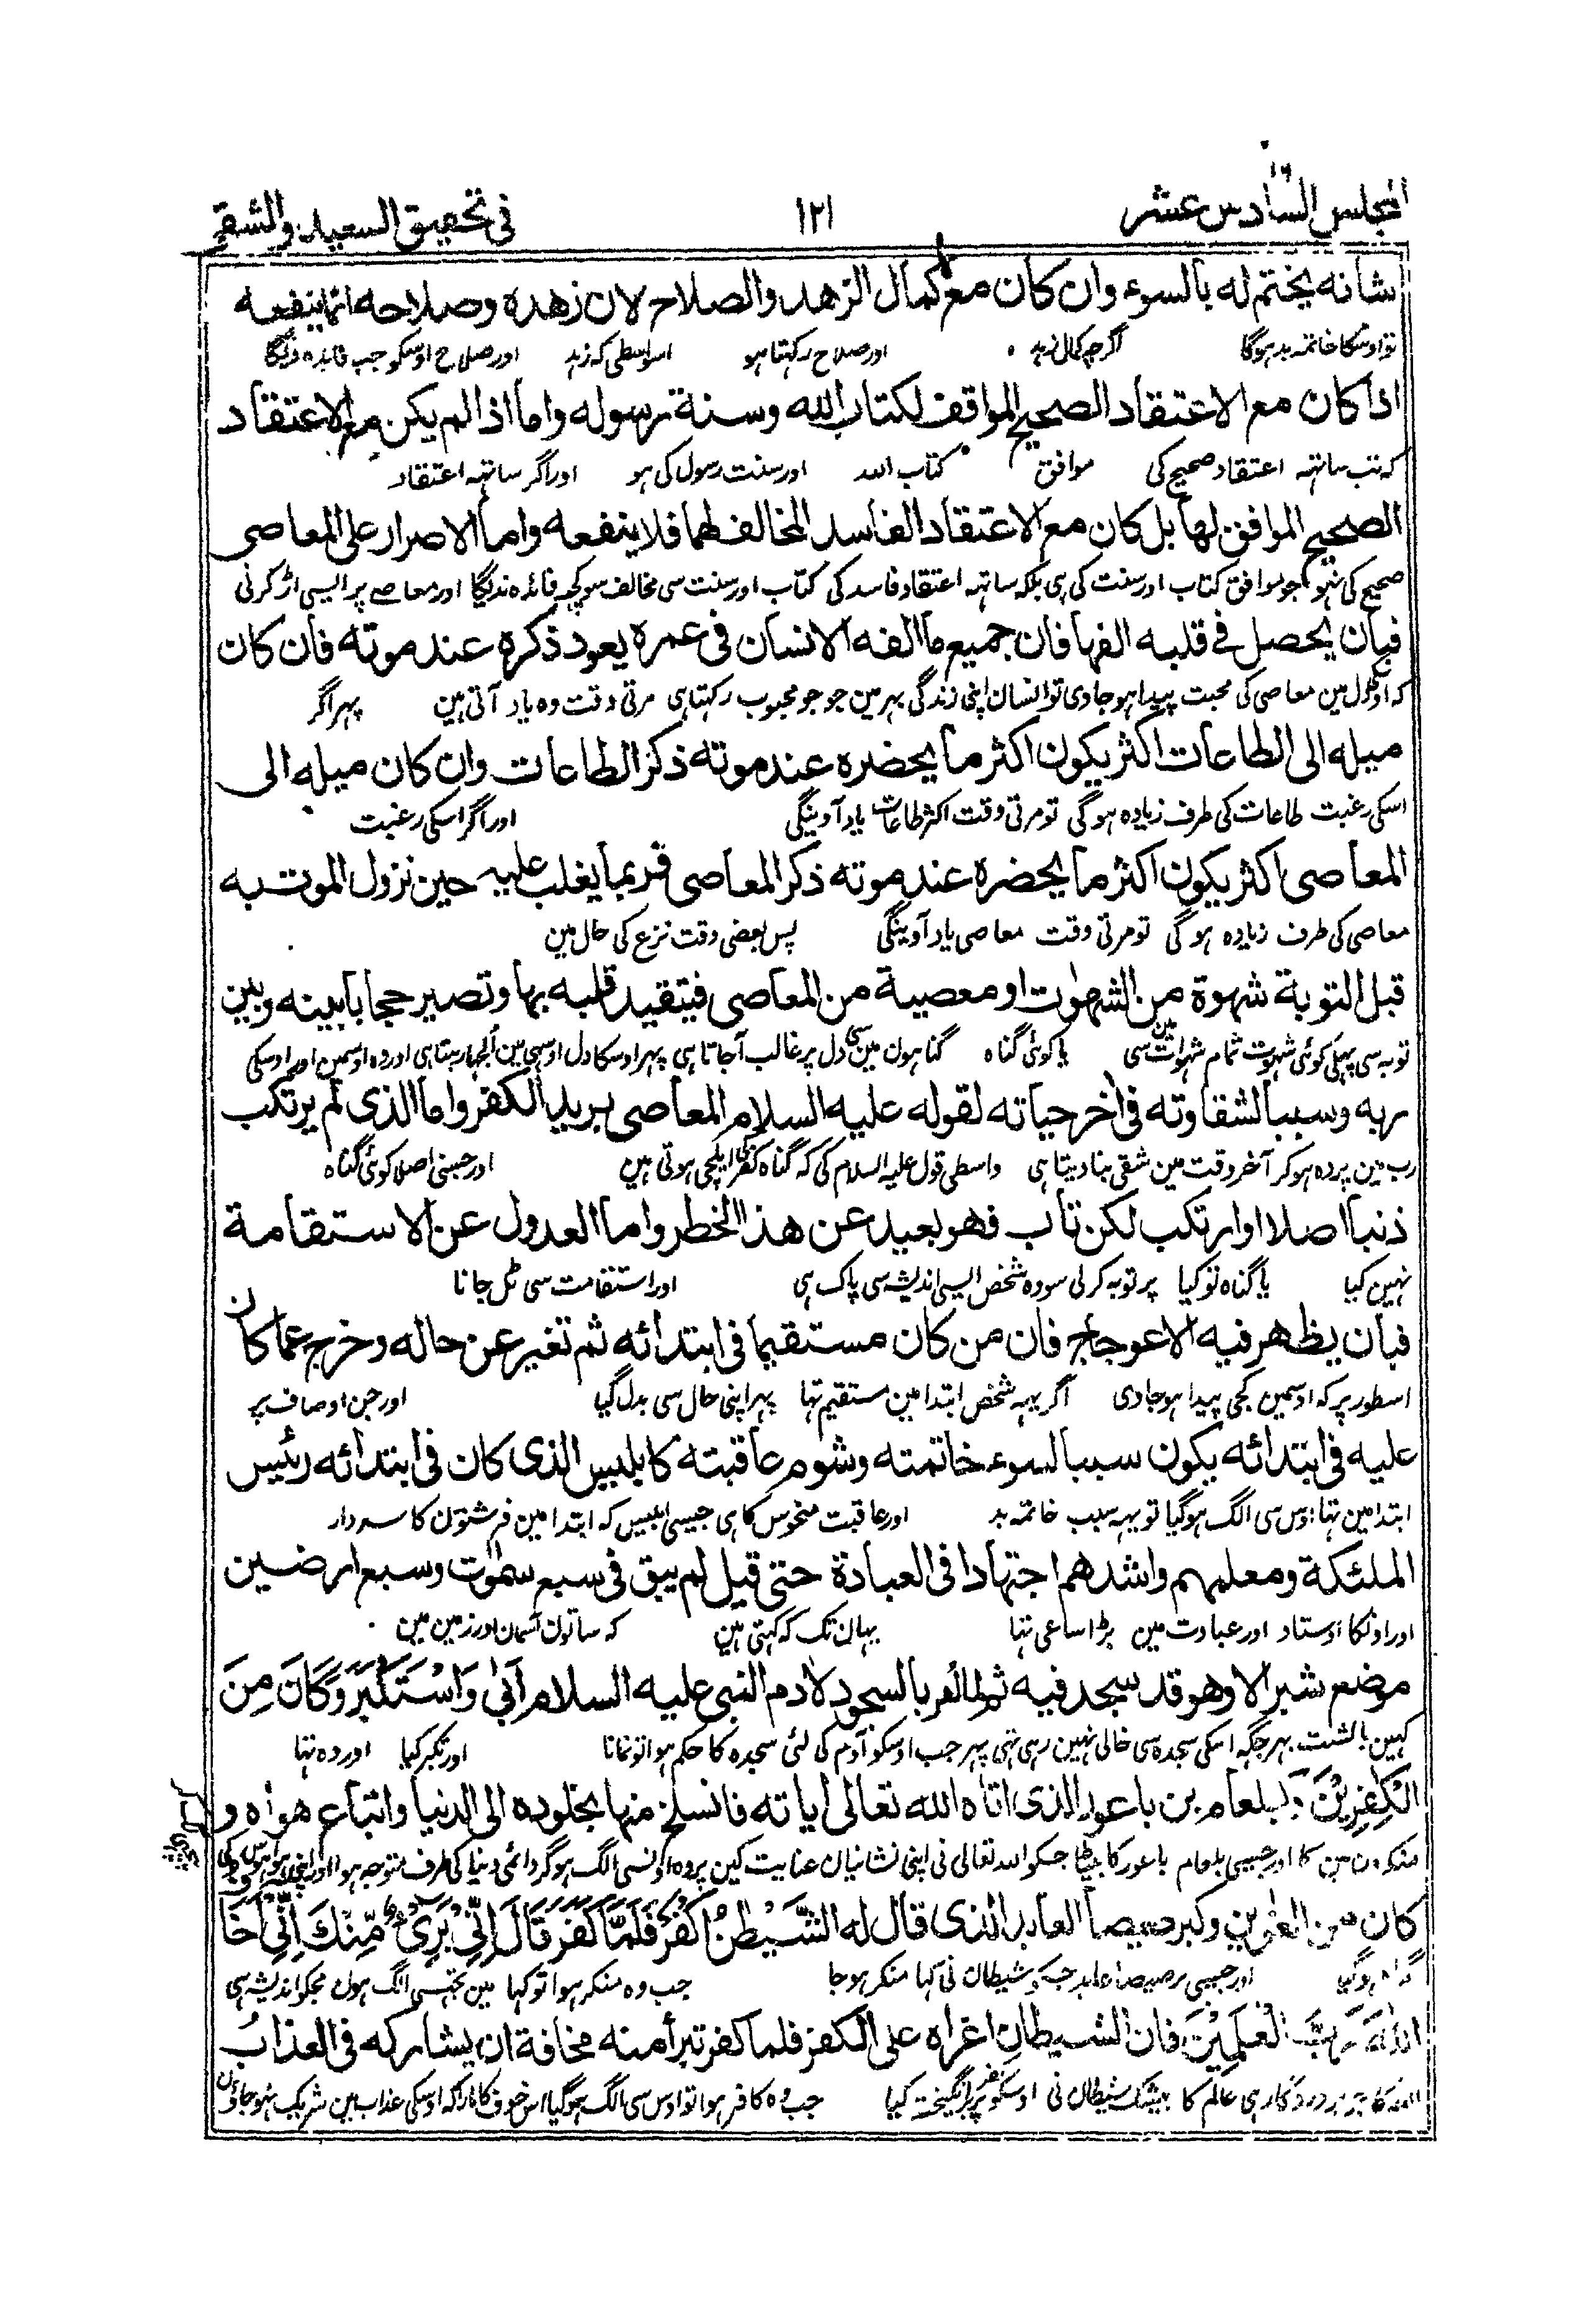 المجلس السادس عشر
١٢١
فی تحقیق السعید والشقی
شانه یختم له بالسوء وان کان مع کمال الزهد والصلاح لان زهده وصلاحه انما ینفعه
تو اوسکا خاتمہ بد ہوگا اگرچہ کمال زہد اور صلاح رکہتا ہو اسواسطی کہ زہد اور صلاح اوسکو جب فایدہ دیگا
اذا کان مع الاعتقاد الصحیح الموافق لکتاب الله وسنة رسوله واما اذا لم یکن مع الاعتقاد
کہ تب ساتہہ اعتقاد صحیح کی موافق کتاب اللہ اور سنت رسول کی ہو اور اگر ساتہہ اعتقاد
الصحیح الموافق لها بل کان مع الاعتقاد الفاسد المخالف لهما فلا ینفعه واما الاصرار علی المعاصی
صحیح کی نہو جو موافق کتاب اور سنت کی ہی بلکہ ساتہہ اعتقاد فاسد کی کتاب اور سنت سی مخالف سو کچہہ فائدہ ندیگا اور معاصی پر ایسی اڑ کرنی
فبان یحصل فی قلبه الفها فان جمیع ما الفه الانسان فی عمره یعود ذکره عند موته فان کان
کہ اوسکی دل مین معاصی کی محبت پیدا ہو جاوی تو انسان اپنی زندگی بہر مین جو جو محبوب رکہتا ہی مرتی وقت وہ یاد آتی ہین پہر اگر
میله الی الطاعات اکثر یکون اکثر ما یحضره عند موته ذکر الطاعات وان کان میله الی
اسکی رغبت طاعات کی طرف زیادہ ہوگی تو مرتی وقت اکثر طاعات یاد آوینگی اور اگر اسکی رغبت
المعاصی اکثر یکون اکثر ما یحضره عند موته ذکر المعاصی فربما یغلب علیه حین نزول الموت به
معاصی کی طرف زیادہ ہوگی تو مرتی وقت معاصی یاد آوینگی پس بعضی وقت نزع کی حال مین
قبل التوبة شهوة من الشهوٰت او معصیة من المعاصی فیتقید قلبه بها وتصیر حجابا بینه وبین
توبہ سی پہلی کوئی شہوت تمام شہوات مین سی یا کوئی گناہ گناہون مین سی دل پر غالب آجاتا ہی پہر اوسکا دل اوسہی مین الجہا رہتا ہی اور وہ اوسمین اور اوسکی
ربه وسببا لشقاوته فی اٰخر حیاته لقوله علیه السلام المعاصی برید الکفر واما الذی لم یرتکب
رب مین پردہ ہوکر آخر وقت مین شقی بنا دیتا ہی واسطی قول علیہ السلام کی کہ گناہ کفر کی ایلچی ہوتی ہین اور جسنی اصلا کوئی گناہ
ذنبا اصلا او ارتکب لکن تاب فهو بعید عن هذا الخطر واما العدول عن الاستقامة
نہین کیا یا گناہ تو کیا پر توبہ کرلی سو وہ شخص ایسی اندیشہ سی پاک ہی اور استقامت سی ٹل جانا
فبان یظهر فیه الاعوجاج فان من کان مستقیما فی ابتدائه ثم تغیر عن حاله وخرج عما کان
اسطور پر کہ اوسمین کجی پیدا ہو جاوی اگر یہہ شخص ابتدا مین مستقیم تہا پہر اپنی حال سی بدل گیا اور جن اوصاف پر
علیه فی ابتدائه یکون سببا لسوء خاتمته وشوم عاقبته کابلیس الذی کان فی ابتدائه رئیس
ابتدا مین تہا اوس سی الگ ہوگیا تو یہہ سبب خاتمہ بد اور عاقبت منحوس کا ہی جیسی ابلیس کہ ابتدا مین فرشتون کا سردار
الملئکة ومعلمهم واشدهم اجتهادا فی العبادة حتی قیل لم یبق فی سبع سموٰت وسبع ارضین
اور اونکا اوستاد اور عبادت مین بڑا ساعی تہا یہان تک کہ کہتی ہین کہ ساتون آسمان اور زمین مین
موضع شبر الا وهو قد سجد فیه ثم لما امر بالسجود لاٰدم النبی علیه السلام اَبٰی وَاسْتَکْبَرَ وَکَانَ مِنَ
کہین بالشت بہر جگہہ اسکی سجدہ سی خالی نہین رہی تہی پہر جب اوسکو آدم کی لئی سجدہ کا حکم ہوا تو نمانا اور تکبر کیا اور وہ تہا
الْکٰفِرِیْنَ وکبلعام بن باعور الذی اتاه الله تعالی اٰیاته فانسلخ منها بخلوده الی الدنیا واتباع هواه و
منکرون مین کا اور جیسی بلعام باعور کا بیٹا جسکو اللہ تعالی نی اپنی نشانیان عنایت کین پر وہ اونسی الگ ہوکر دائمی دنیا کی طرف متوجہ ہوا اور اپنی
کان من الغٰوین وکبرصیصا العابد الذی قال له الشَّیْطٰنُ اکْفُرْ فَلَمَّا کَفَرَ قَالَ اِنِّیْ بَرِیْءٌ مِّنْكَ اِنِّیْ اَخَا
ہوگیا اور جیسی برصیصا عابد جسکو شیطان نی کہا منکر ہوجا جب وہ منکر ہوا تو کہا مین تجہسی الگ ہون مجکو اندیشہ ہی
اللّٰهَ رَبَّ الْعٰلَمِیْنَ فان الشیطان اغراه علی الکفر فلما کفر تبرأ منه مخافة ان یشارکه فی العذاب
اللہ کا جو پروردگار ہی عالم کا بیشک شیطان نی اوسکو کفر پر برانگیختہ کیا جب وہ کافر ہوا تو اوس سی الگ ہوگیا اس خوف کا مارا کہ اوسکی عذاب مین شریک نہو جاؤن